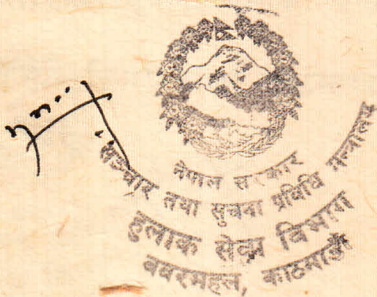 नेपाल सरकार
सञ्चार तथा सुचना प्रविधि मन्त्रालय
हुलाक सेवा विभाग
बबरमहल, काठमाडौं